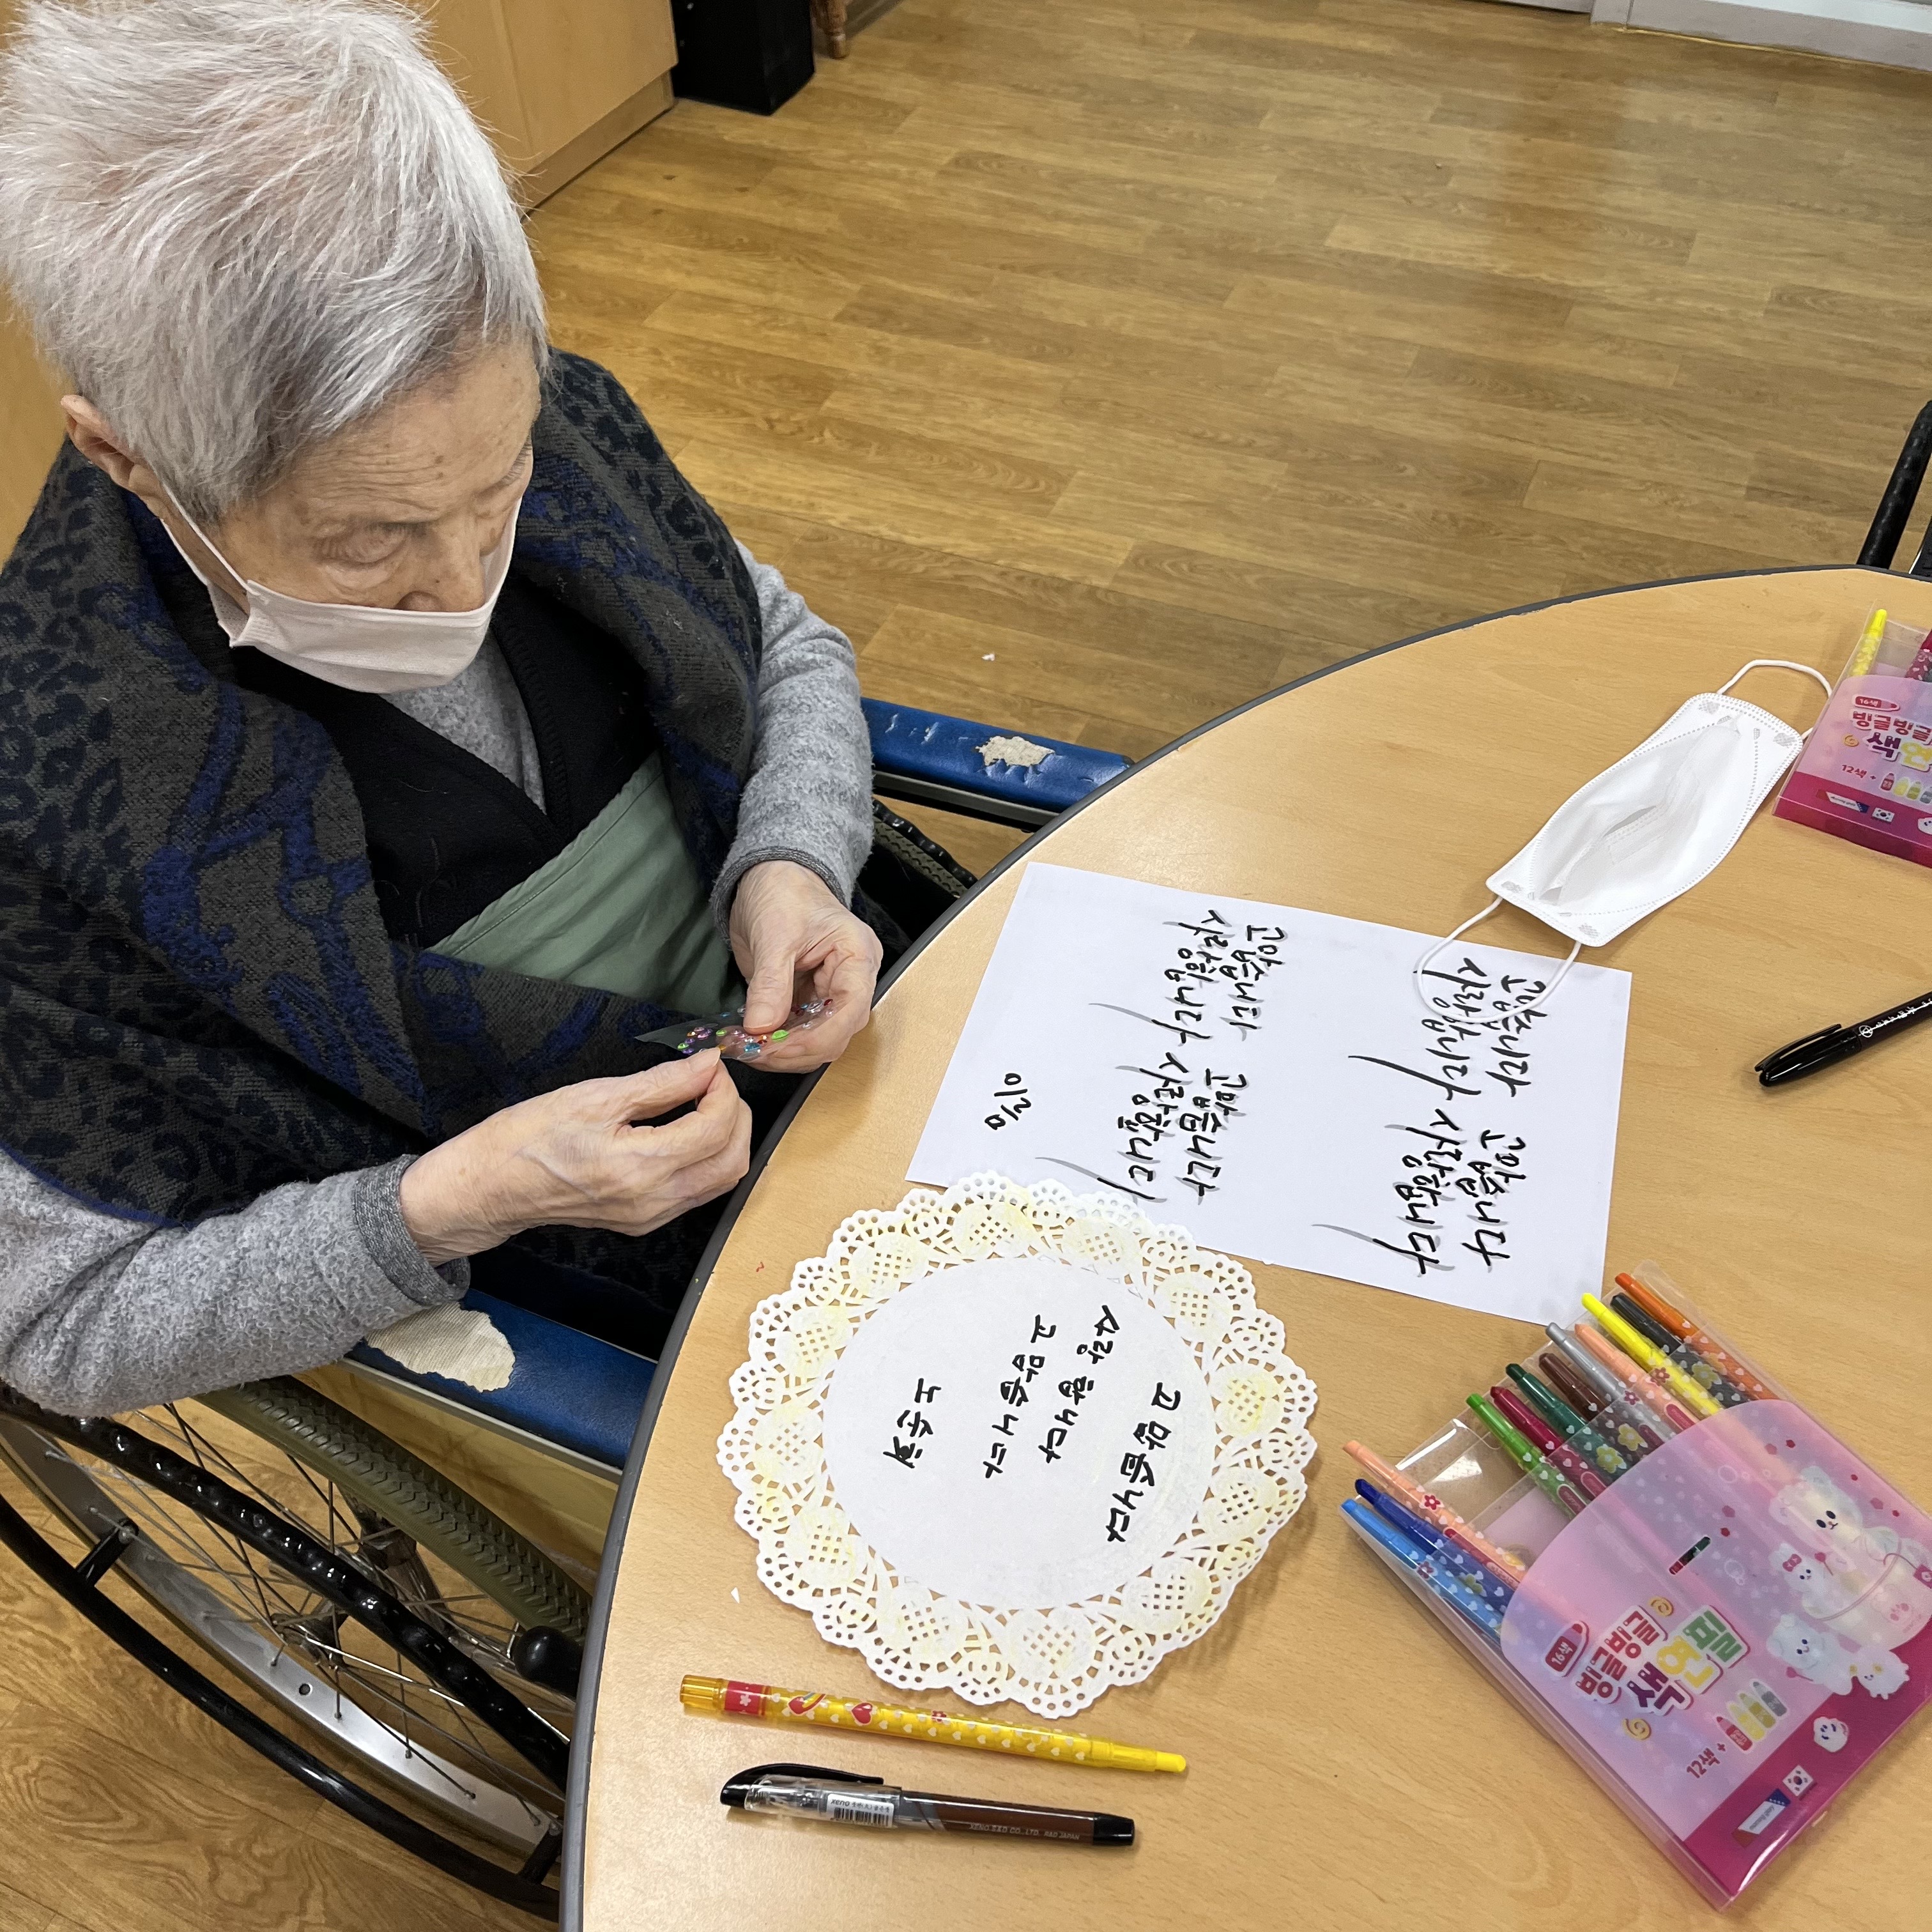 고맙습니다 고맙습니다
사랑합니다 사랑합니다
고맙습니다 고맙습니다
사랑합니다 사랑합니다
고 맙 습니다
사랑 합니다
고 맙 습니다
16색
빙글빙글
색연필
12색 +
16색
빙글빙글
색연
12색 +
XENO